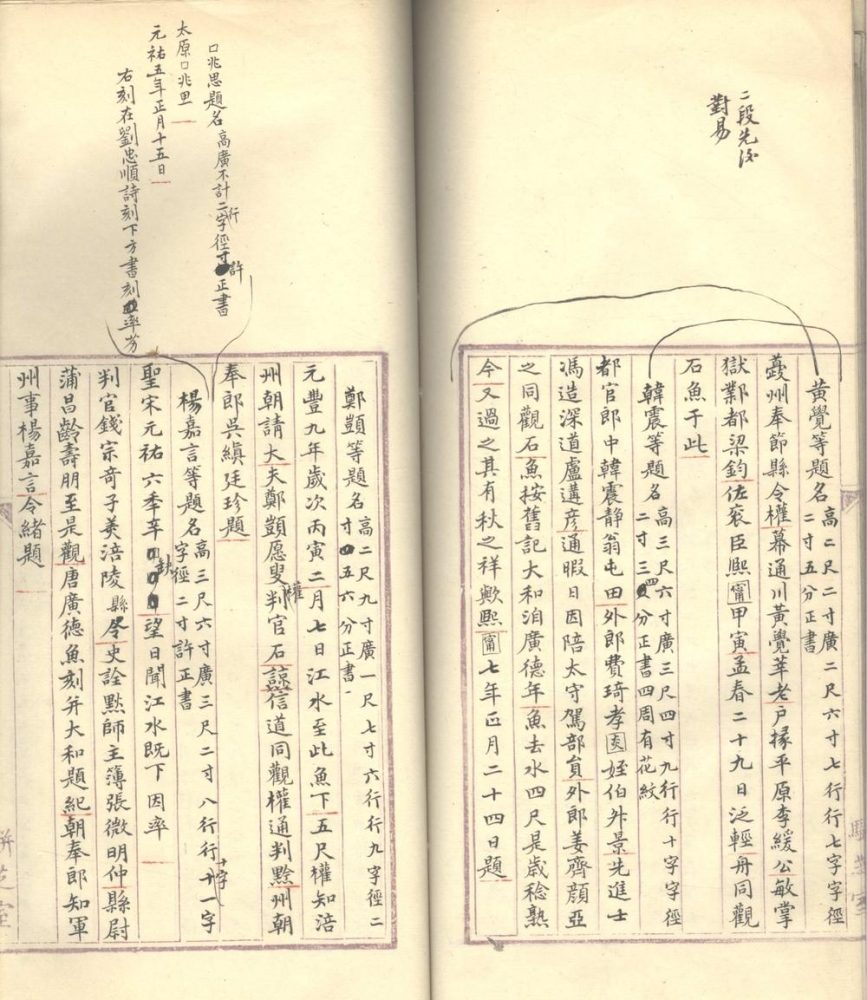 二段先後
對易
黃覺等題名高二尺二寸廣二尺六寸七行行七字字徑
二寸五分正書
夔州奉節縣令權幕通川黃覺莘老戶掾平原李緩公敏掌
獄鄴都梁鈞佐袞臣熙甯甲寅孟春二十九日泛輕舟同觀
石魚于此
韓震等題名高三尺六寸廣三尺四寸九行行十字字徑
二寸三四分正書四周有花紋
都官郎中韓震静翁屯田外郎費琦孝琰姪伯升景先進士
馮造深道盧遘彦通暇日因陪太守駕部貟外郎姜齊顔亞
之同觀石魚按舊記大和洎廣德年魚去水四尺是歲稔熟
今又過之其有秋之祥歟熙甯七年正月二十四日題
口兆思題名高廣不計二行字徑寸許正書
太原口兆思
元祐五年正月十五日
右刻在劉忠順詩刻下方書刻率劣
鄭顗等題名高二尺九寸廣一尺七寸六行行九字徑二
寸五六分正書
元豐九年歲次丙寅二月七日江水至此魚下五尺權知涪
州朝請大夫鄭顗愿叟權判官石諒信道同觀權通判黔州朝
奉郎吳縝廷珍題
楊嘉言等題名高三尺六寸廣三尺二寸八行行十一字
字徑二寸許正書
聖宋元祐六季辛缺望日聞江水既下因率
判官錢宗奇子美涪陵縣令史詮默師主簿張微明仲縣尉
蒲昌齡壽朋至是觀唐廣德魚刻并大和題紀朝奉郎知軍
州事楊嘉言令緒題